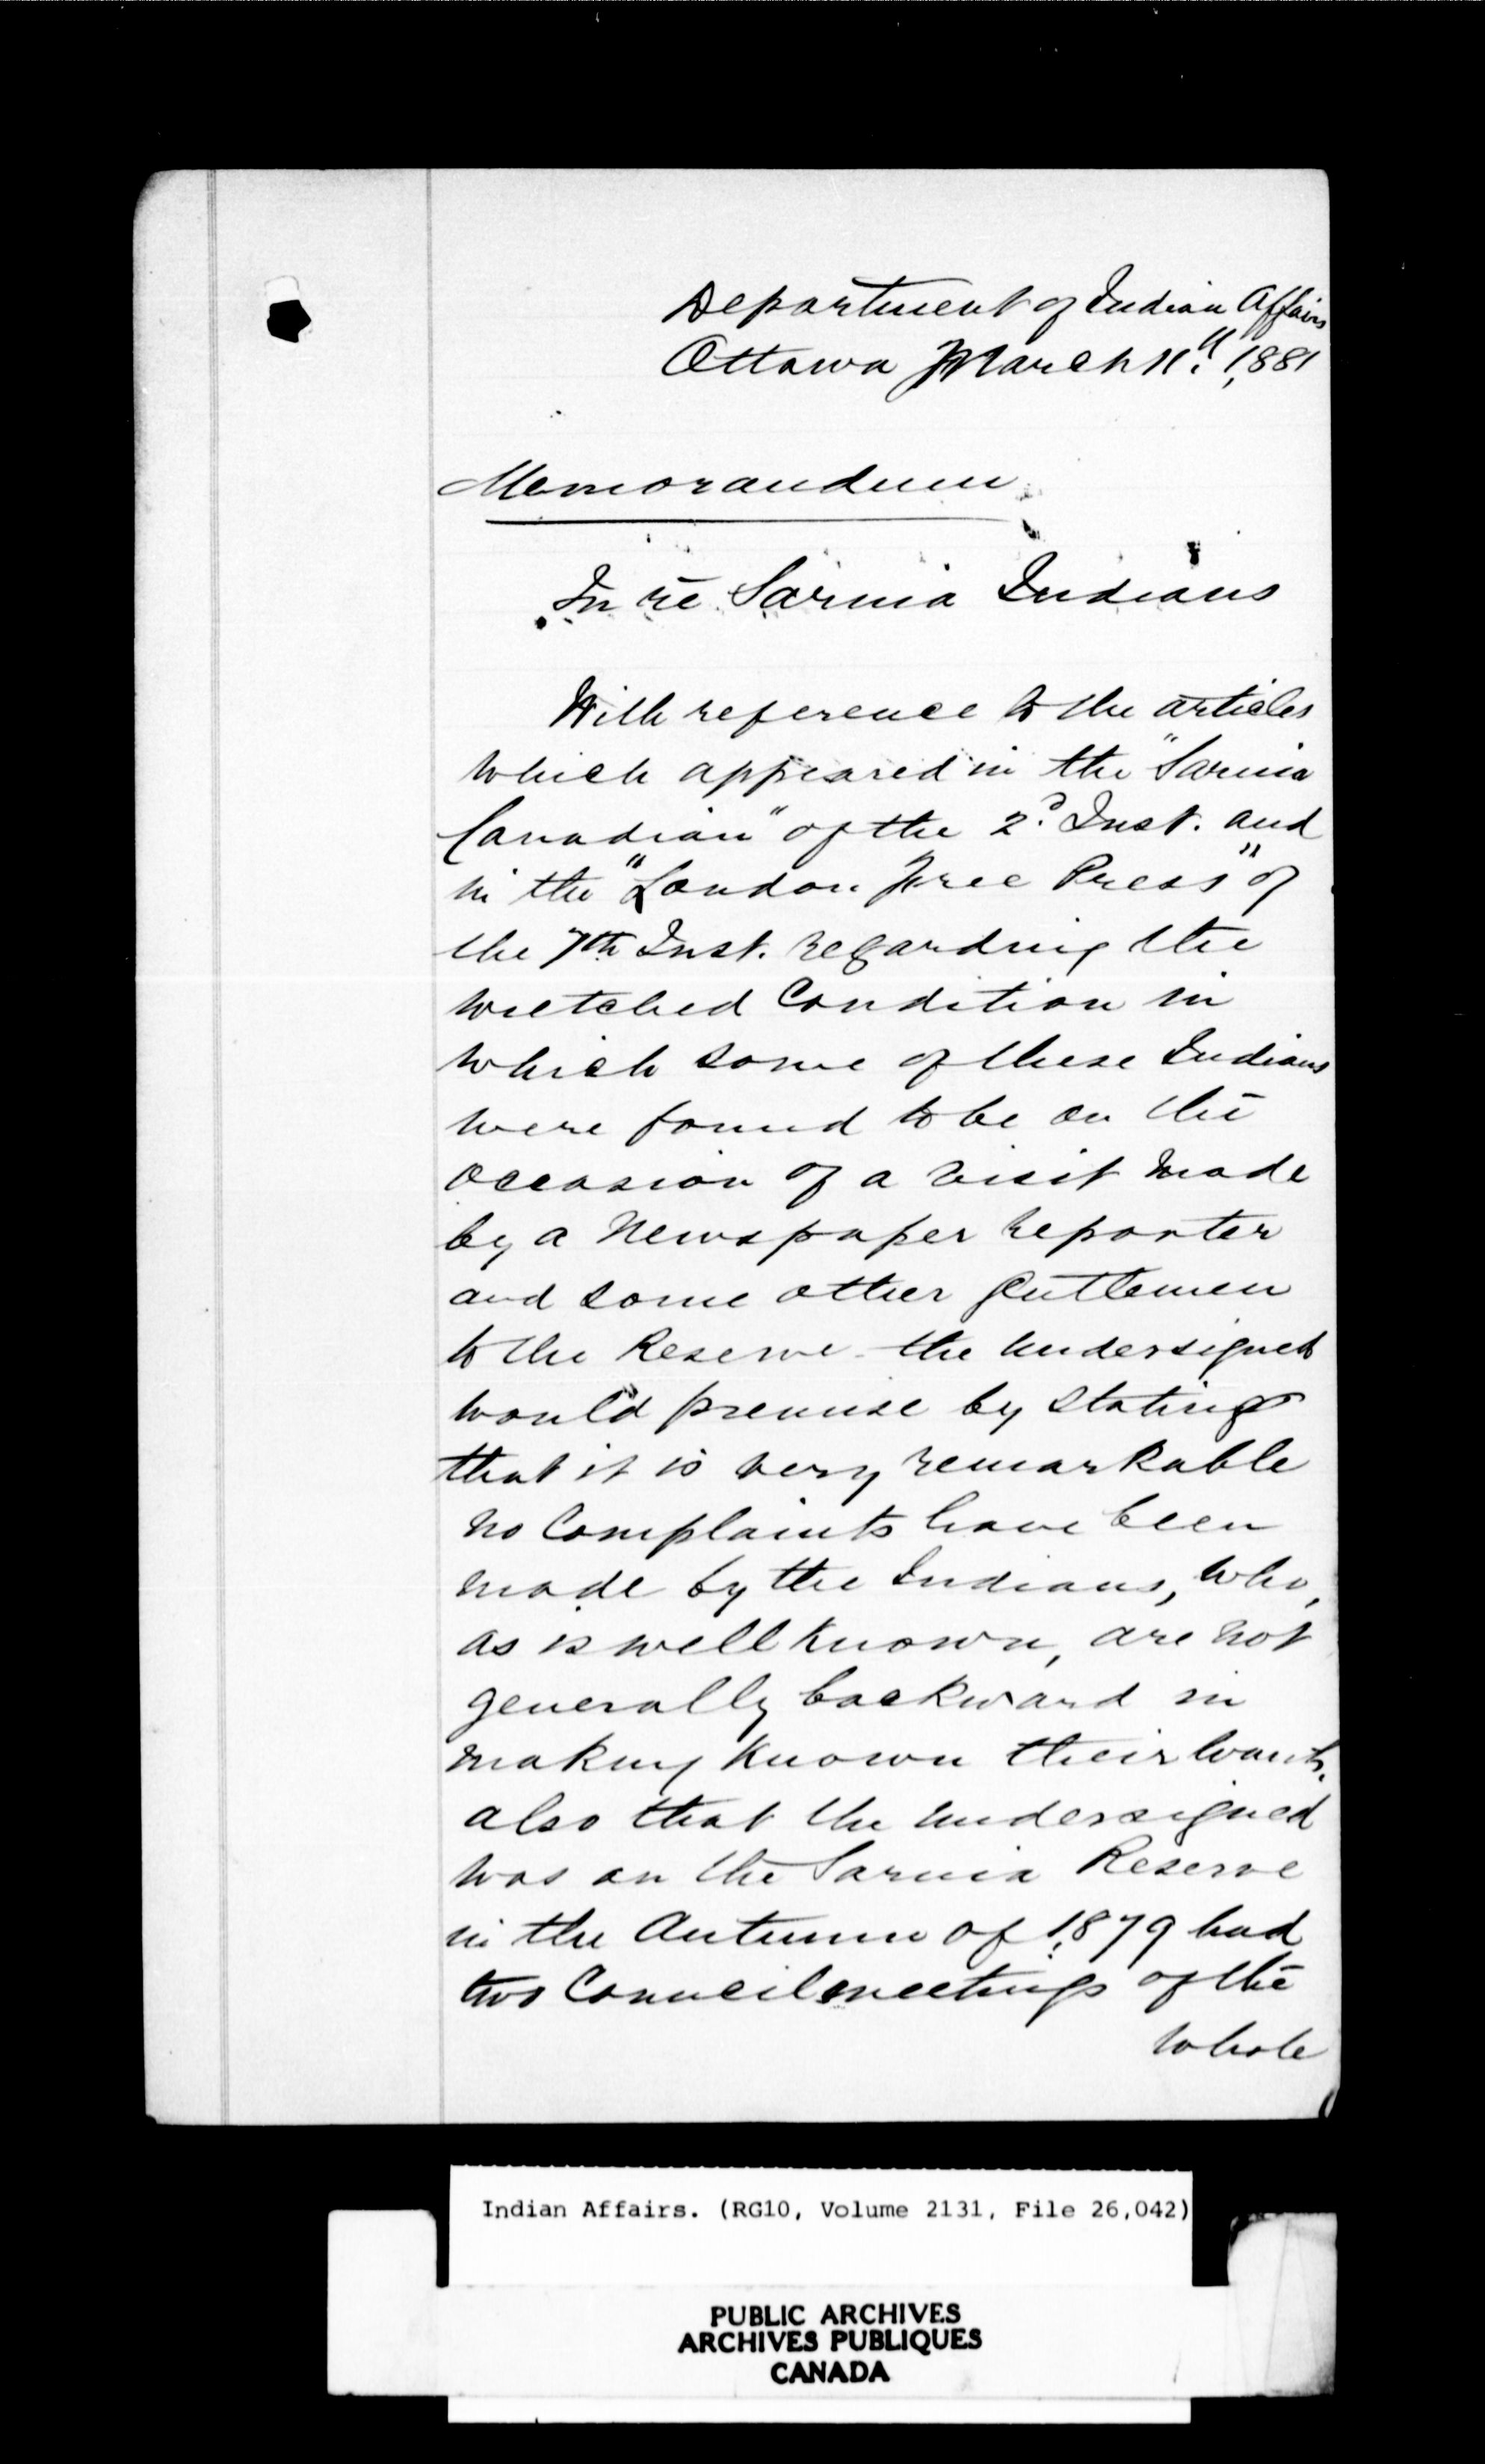 Department of Indian Affairs
Ottawa March 11th 1881
Memorandum
In re Sarnia Indians
With reference to the articles
which appeared in the "Sarnia
Canadian" of the 2d Inst. and
in the "London Free Press" of
the 7th Inst. regarding the
wretched Condition in
which some of these Indians
were found to be on the
occasion of a visit made
by a Newspaper reporter
and some other gentlemen
to the Reserve - the undersigned
would premise by stating
that it is very remarkable
no Complaints have been
made by the Indians, who,
as is well known, are not
generally backward in
making known their wants.
also that the undersigned
was on the Sarnia Reserve
in the Autumn of 1879 had
two Council meetings of the
whole
Indian Affairs. (RG10, Volume 2131, File 26,042)
PUBLIC ARCHIVES
ARCHIVES PUBLIQUES
CANADA